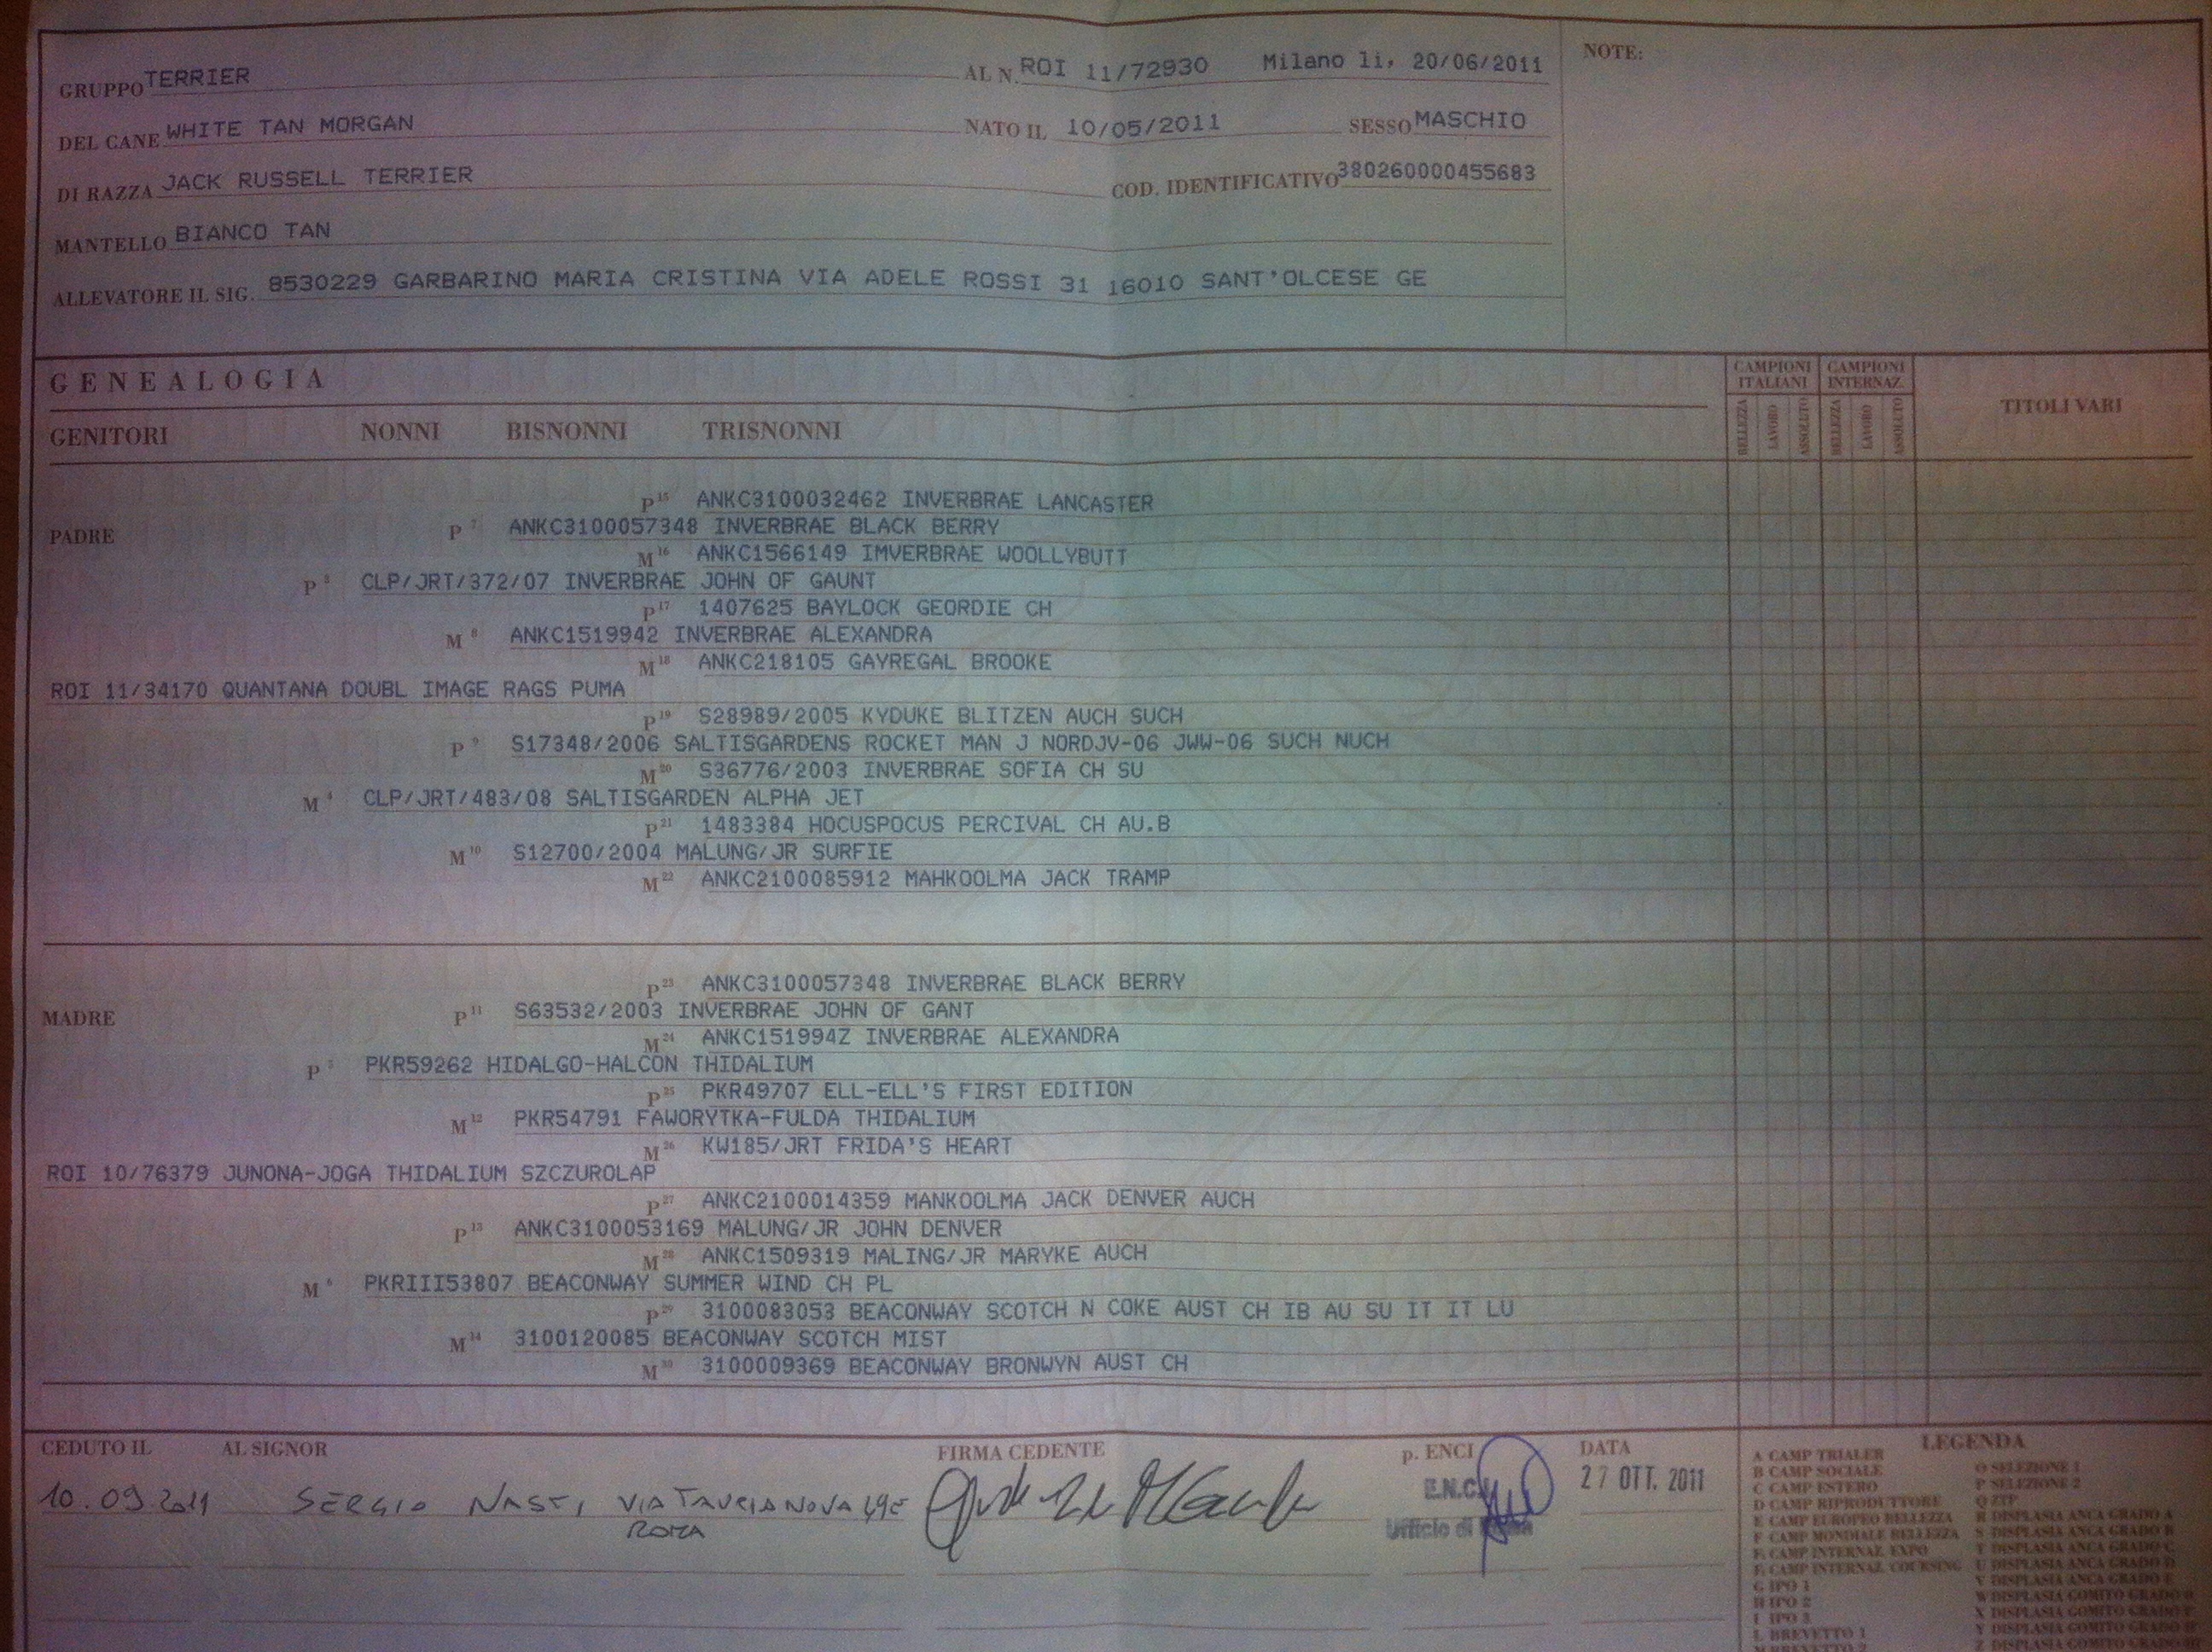 GRUPPO TERRIER AL N. ROI 11/72930 Milano li, 20/06/2011 NOTE:
DEL CANE WHITE TAN MORGAN NATO IL 10/05/2011 SESSO MASCHIO
DI RAZZA JACK RUSSELL TERRIER COD. IDENTIFICATIVO 380260000455683
MANTELLO BIANCO TAN
ALLEVATORE IL SIG. 8530229 GARBARINO MARIA CRISTINA VIA ADELE ROSSI 31 16010 SANT'OLCESE GE
GENEALOGIA
CAMPIONI ITALIANI CAMPIONI INTERNAZ.
BELLEZZA LAVORO ASSOLUTO BELLEZZA LAVORO ASSOLUTO TITOLI VARI
GENITORI NONNI BISNONNI TRISNONNI
P 15 ANKC3100032462 INVERBRAE LANCASTER
PADRE P 7 ANKC3100057348 INVERBRAE BLACK BERRY
M 16 ANKC1566149 IMVERBRAE WOOLLYBUTT
P 3 CLP/JRT/372/07 INVERBRAE JOHN OF GAUNT
P 17 1407625 BAYLOCK GEORDIE CH
M 8 ANKC1519942 INVERBRAE ALEXANDRA
M 18 ANKC218105 GAYREGAL BROOKE
ROI 11/34170 QUANTANA DOUBL IMAGE RAGS PUMA
P 19 S28989/2005 KYDUKE BLITZEN AUCH SUCH
P 9 S17348/2006 SALTISGARDENS ROCKET MAN J NORDJV-06 JWW-06 SUCH NUCH
M 20 S36776/2003 INVERBRAE SOFIA CH SU
M 4 CLP/JRT/483/08 SALTISGARDEN ALPHA JET
P 21 1483384 HOCUSPOCUS PERCIVAL CH AU.B
M 10 S12700/2004 MALUNG/JR SURFIE
M 22 ANKC2100085912 MAHKOOLMA JACK TRAMP
P 23 ANKC3100057348 INVERBRAE BLACK BERRY
MADRE P 11 S63532/2003 INVERBRAE JOHN OF GANT
M 24 ANKC151994Z INVERBRAE ALEXANDRA
P 5 PKR59262 HIDALGO-HALCON THIDALIUM
P 25 PKR49707 ELL-ELL'S FIRST EDITION
M 12 PKR54791 FAWORYTKA-FULDA THIDALIUM
M 26 KW185/JRT FRIDA'S HEART
ROI 10/76379 JUNONA-JOGA THIDALIUM SZCZUROLAP
P 27 ANKC2100014359 MANKOOLMA JACK DENVER AUCH
P 13 ANKC3100053169 MALUNG/JR JOHN DENVER
M 28 ANKC1509319 MALING/JR MARYKE AUCH
M 6 PKRIII53807 BEACONWAY SUMMER WIND CH PL
P 29 3100083053 BEACONWAY SCOTCH N COKE AUST CH IB AU SU IT IT LU
M 14 3100120085 BEACONWAY SCOTCH MIST
M 30 3100009369 BEACONWAY BRONWYN AUST CH
CEDUTO IL AL SIGNOR FIRMA CEDENTE p. ENCI DATA
10.09.2011 SERGIO NASTI, VIA TAURIANOVA 49E 27 OTT. 2011
ROMA
E.N.C.I.
Ufficio di
LEGENDA
A CAMP TRIALER
B CAMP SOCIALE O SELEZIONE 1
C CAMP ESTERO P SELEZIONE 2
D CAMP RIPRODUTTORE Q ZTP
E CAMP EUROPEO BELLEZZA R DISPLASIA ANCA GRADO A
F CAMP MONDIALE BELLEZZA S DISPLASIA ANCA GRADO B
CAMP INTERNAZ EXPO T DISPLASIA ANCA GRADO C
CAMP INTERNAZ COURSING U DISPLASIA ANCA GRADO D
G IPO 1 V DISPLASIA ANCA GRADO E
H IPO 2 W DISPLASIA GOMITO GRADO
I IPO 3 X DISPLASIA GOMITO GRADO
L BREVETTO 1 Y DISPLASIA GOMITO GRADO